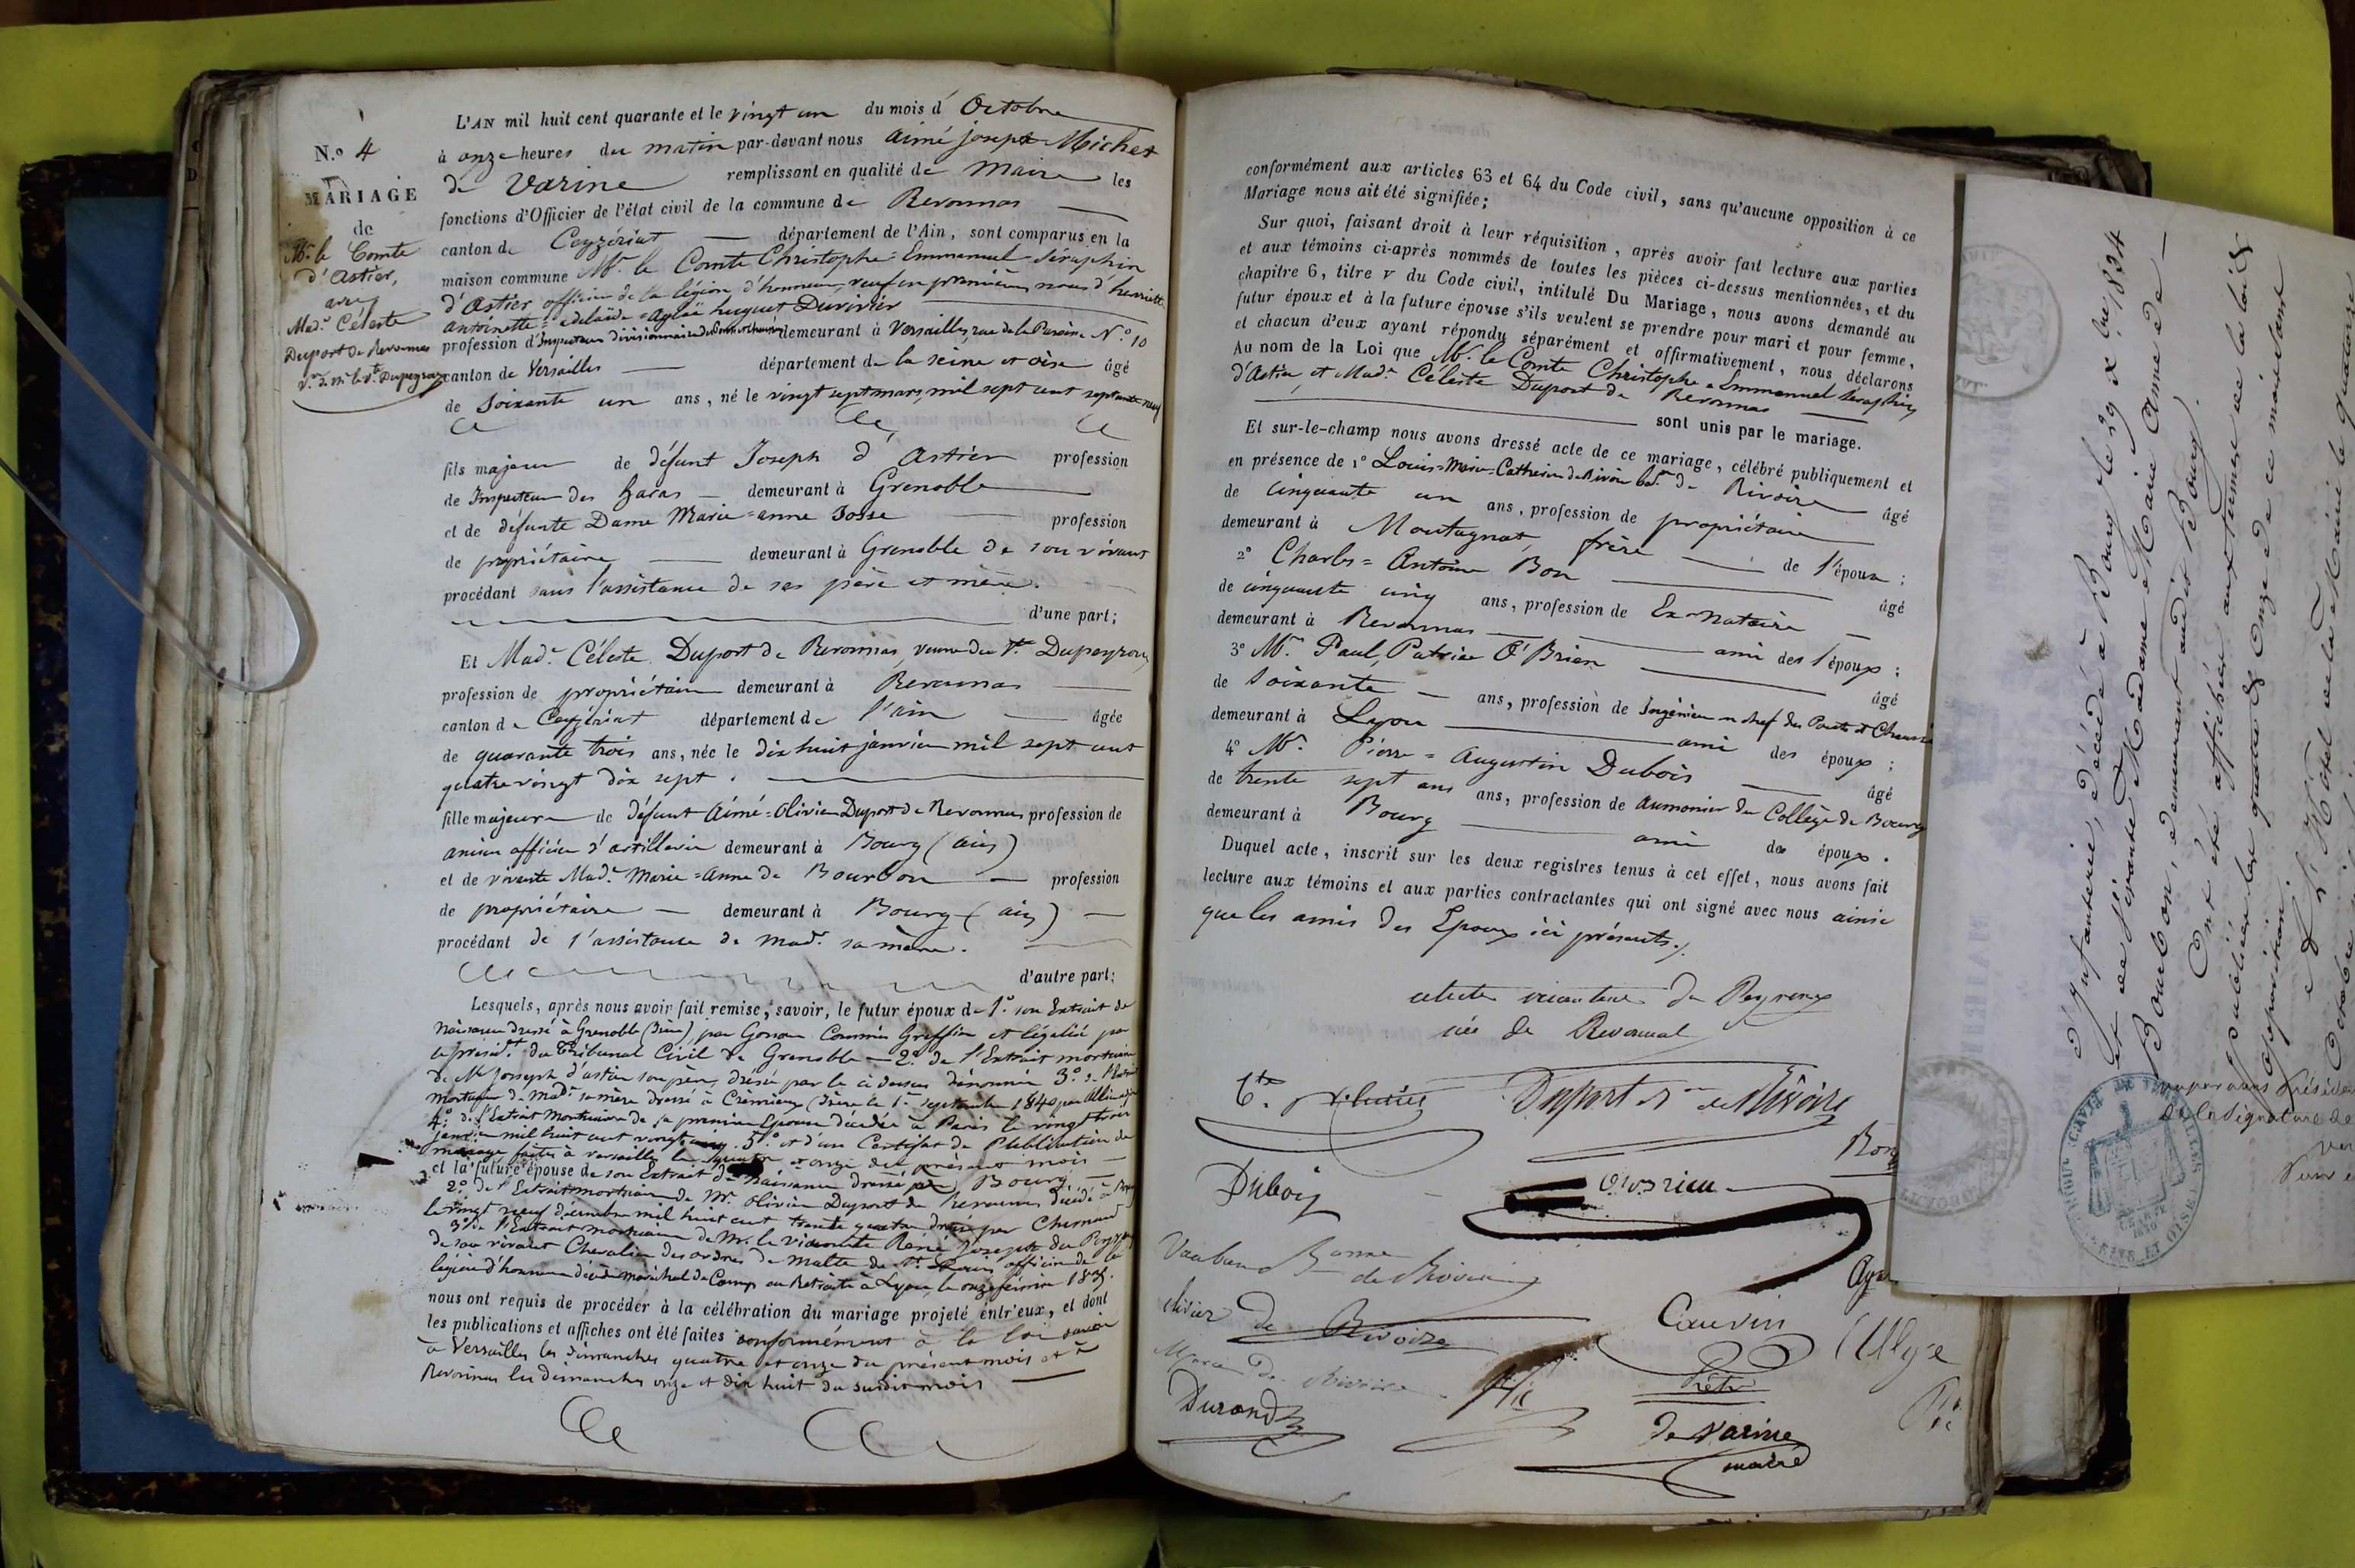 N.º 4
MARIAGE
de
Mr. le Comte
d'Astier,
avec
Made. Céleste
Duport de Revonnas
L'AN mil huit cent quarante et le vingt un du mois d' Octobre
à onze heures du matin par-devant nous Aimé joseph Michet
de Varine remplissant en qualité de Maire les
fonctions d'Officier de l'état civil de la commune de Revonnas
canton de Ceyzériat département de l'Ain, sont comparus en la
maison commune Mr. le Comte Christophe=Emmanuel=Séraphin
d'Astier officier de la légion d'honneur, veuf en premières noces d'henriette
antoinette=adelaïde=aglaë huguet Duvivier
profession d'Inspecteur divisionnaire demeurant à Versailles, rue de la Paroisse Nº. 10
canton de Versailles département de la seine et oise âgé
de soixante un ans, né le vingt sept mars, mil sept cent septante neuf
fils majeur de défunt Joseph d'Astier profession
de Inspecteur des haras demeurant à Grenoble
et de défunte Dame Marie=anne Josse profession
de propriétaire demeurant à Grenoble de son vivant
procédant sans l'assistance de ses père et mère.
d'une part;
Et Made. Céleste Duport de Revonnas, veuve du Vte. Dupeyroux
profession de propriétaire demeurant à Revonnas
canton de Ceyzériat département de l'ain âgée
de quarante trois ans, née le dix huit janvier mil sept cent
quatre vingt dix sept.
fille majeure de défunt Aimé=Olivier Duport de Revonnas profession de
ancien officier d'artillerie demeurant à Bourg (ain)
et de vivante Made. Marie=Anne de Bourbon profession
de propriétaire demeurant à Bourg (ain)
procédant de l'assistance de made. sa mère.
d'autre part;
Lesquels, après nous avoir fait remise, savoir, le futur époux de 1º. son Extrait de
naissance dressé à Grenoble (Isère), par Commis Greffier et légalisé par
le présidt. du Tribunal Civil de Grenoble — 2º. de l'Extrait mortuaire
de Mr. Joseph d'astier son père, dressé par le ci dessus dénommé 3º. de l'Extrait
mortuaire de made. sa mère dressé à Crémieux (Isère le 1er. septembre 1840 par
4º. de l'Extrait Mortuaire de sa première Epouse décédée à Paris le vingt trois
janvier mil huit cent vingt 5º. et d'un Certificat de Publication de
mariage faites à versailles le quatre et onze du présent mois —
et la future épouse de son Extrait de Naissance dressé par Bourg
2º. de l'Extrait mortuaire de Mr. Olivier Duport de Revonnas décédé à Bourg
le vingt neuf décembre mil huit cent trente quatre dressé par
3º. de l'Extrait mortuaire de Mr. le vicomte René Joseph du Peyroux
de son vivant Chevalier des ordres de Malte de St. Louis officier de la
légion d'honneur décédé maréchal de Camp en Retraite à Lyon, le onze février
nous ont requis de procéder à la célébration du mariage projeté entr'eux, et dont
les publications et affiches ont été faites conformément à la loi savoir
à Versailles les dimanches quatre et onze du présent mois et à
Revonnas les dimanches onze et dix huit du susdit mois
conformément aux articles 63 et 64 du Code civil, sans qu'aucune opposition à ce
Mariage nous ait été signifiée;
Sur quoi, faisant droit à leur réquisition, après avoir fait lecture aux parties
et aux témoins ci-après nommés de toutes les pièces ci-dessus mentionnées, et du
chapitre 6, titre v du Code civil, intitulé Du Mariage, nous avons demandé au
futur époux et à la future épouse s'ils veulent se prendre pour mari et pour femme,
et chacun d'eux ayant répondu séparément et affirmativement, nous déclarons
Au nom de la Loi que Mr. le Comte Christophe=Emmanuel Séraphin
d'Astier, et Made. Céleste Duport de Revonnas
sont unis par le mariage.
Et sur-le-champ nous avons dressé acte de ce mariage, célébré publiquement et
en présence de 1º Louis=Marie=Catherin de Rivoire
de cinquante un ans, profession de propriétaire âgé
demeurant à Montagnat, frère de l'époux;
2º Charles=Antoine Bon âgé
de cinquante cinq ans, profession de Ex-Notaire
demeurant à Revonnas ami des époux;
3º Mr. Paul, Patrice O'Brien âgé
de soixante ans, profession de Ingénieur en chef des Ponts et Chaussées
demeurant à Lyon ami des époux;
4º Mr. Pierre=Augustin Dubois âgé
de trente sept ans ans, profession de aumonier du Collège de Bourg
demeurant à Bourg ami des époux.
Duquel acte, inscrit sur les deux registres tenus à cet effet, nous avons fait
lecture aux témoins et aux parties contractantes qui ont signé avec nous ainsi
que les amis des Epoux ici présents.
celeste vicomtesse du Peyroux
née de Revonnas
Cte. d'Astier
Duport de Rivoire
Bon
Dubois
O'Brien
Vauban
de Rivoire
olivier de Rivoire
Cauvin
Ulyse
Durand
de Varine
maire
d'Infanterie, décédé à Bourg le 29 xbre 1834
et de vivante Madame Marie Anne de
Bourbon, demeurant audit Bourg.
Ont été affichées aux termes de la loi &
publiées les quatre & Onze de ce mois sans
opposition.
à L'Hôtel de la Mairie le quatorze
Octobre
de la signature de